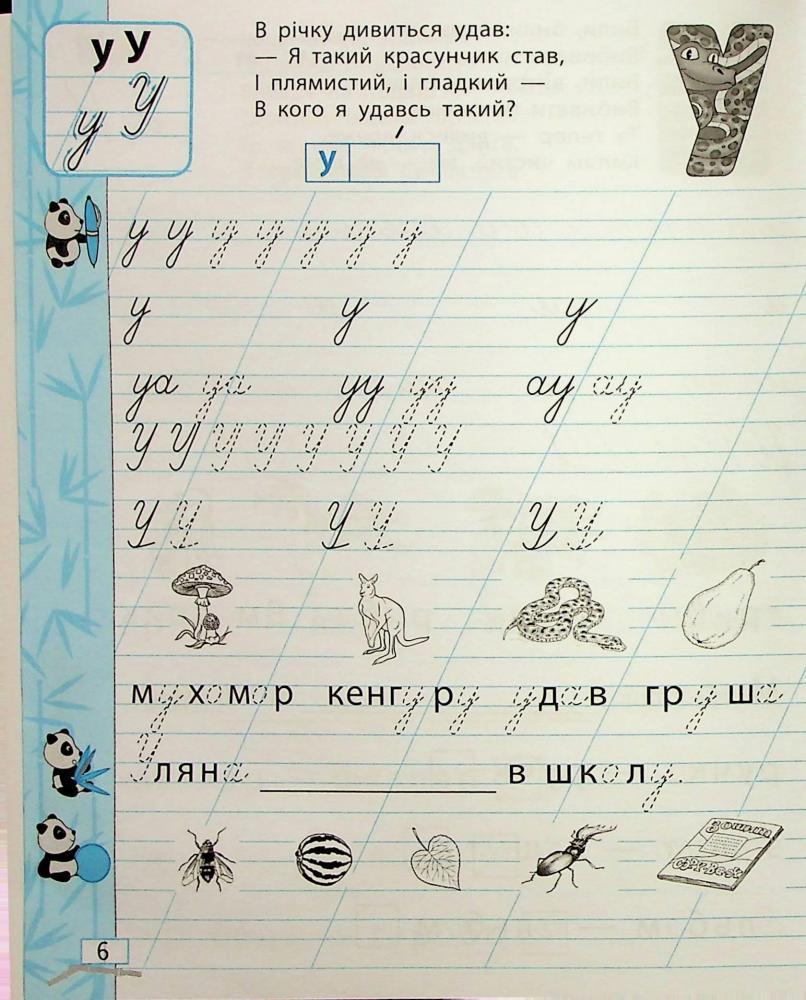 у У
В річку дивиться удав:
— Я такий красунчик став,
І плямистий, і гладкий —
В кого я удавсь такий?
у У
у
у у у у у у у
у у у
уа уа уу уу ау ау
У У У У У У У У
У У У У У У
мухомор кенгуру удав груша
Уляна в школу.
Зошит
6